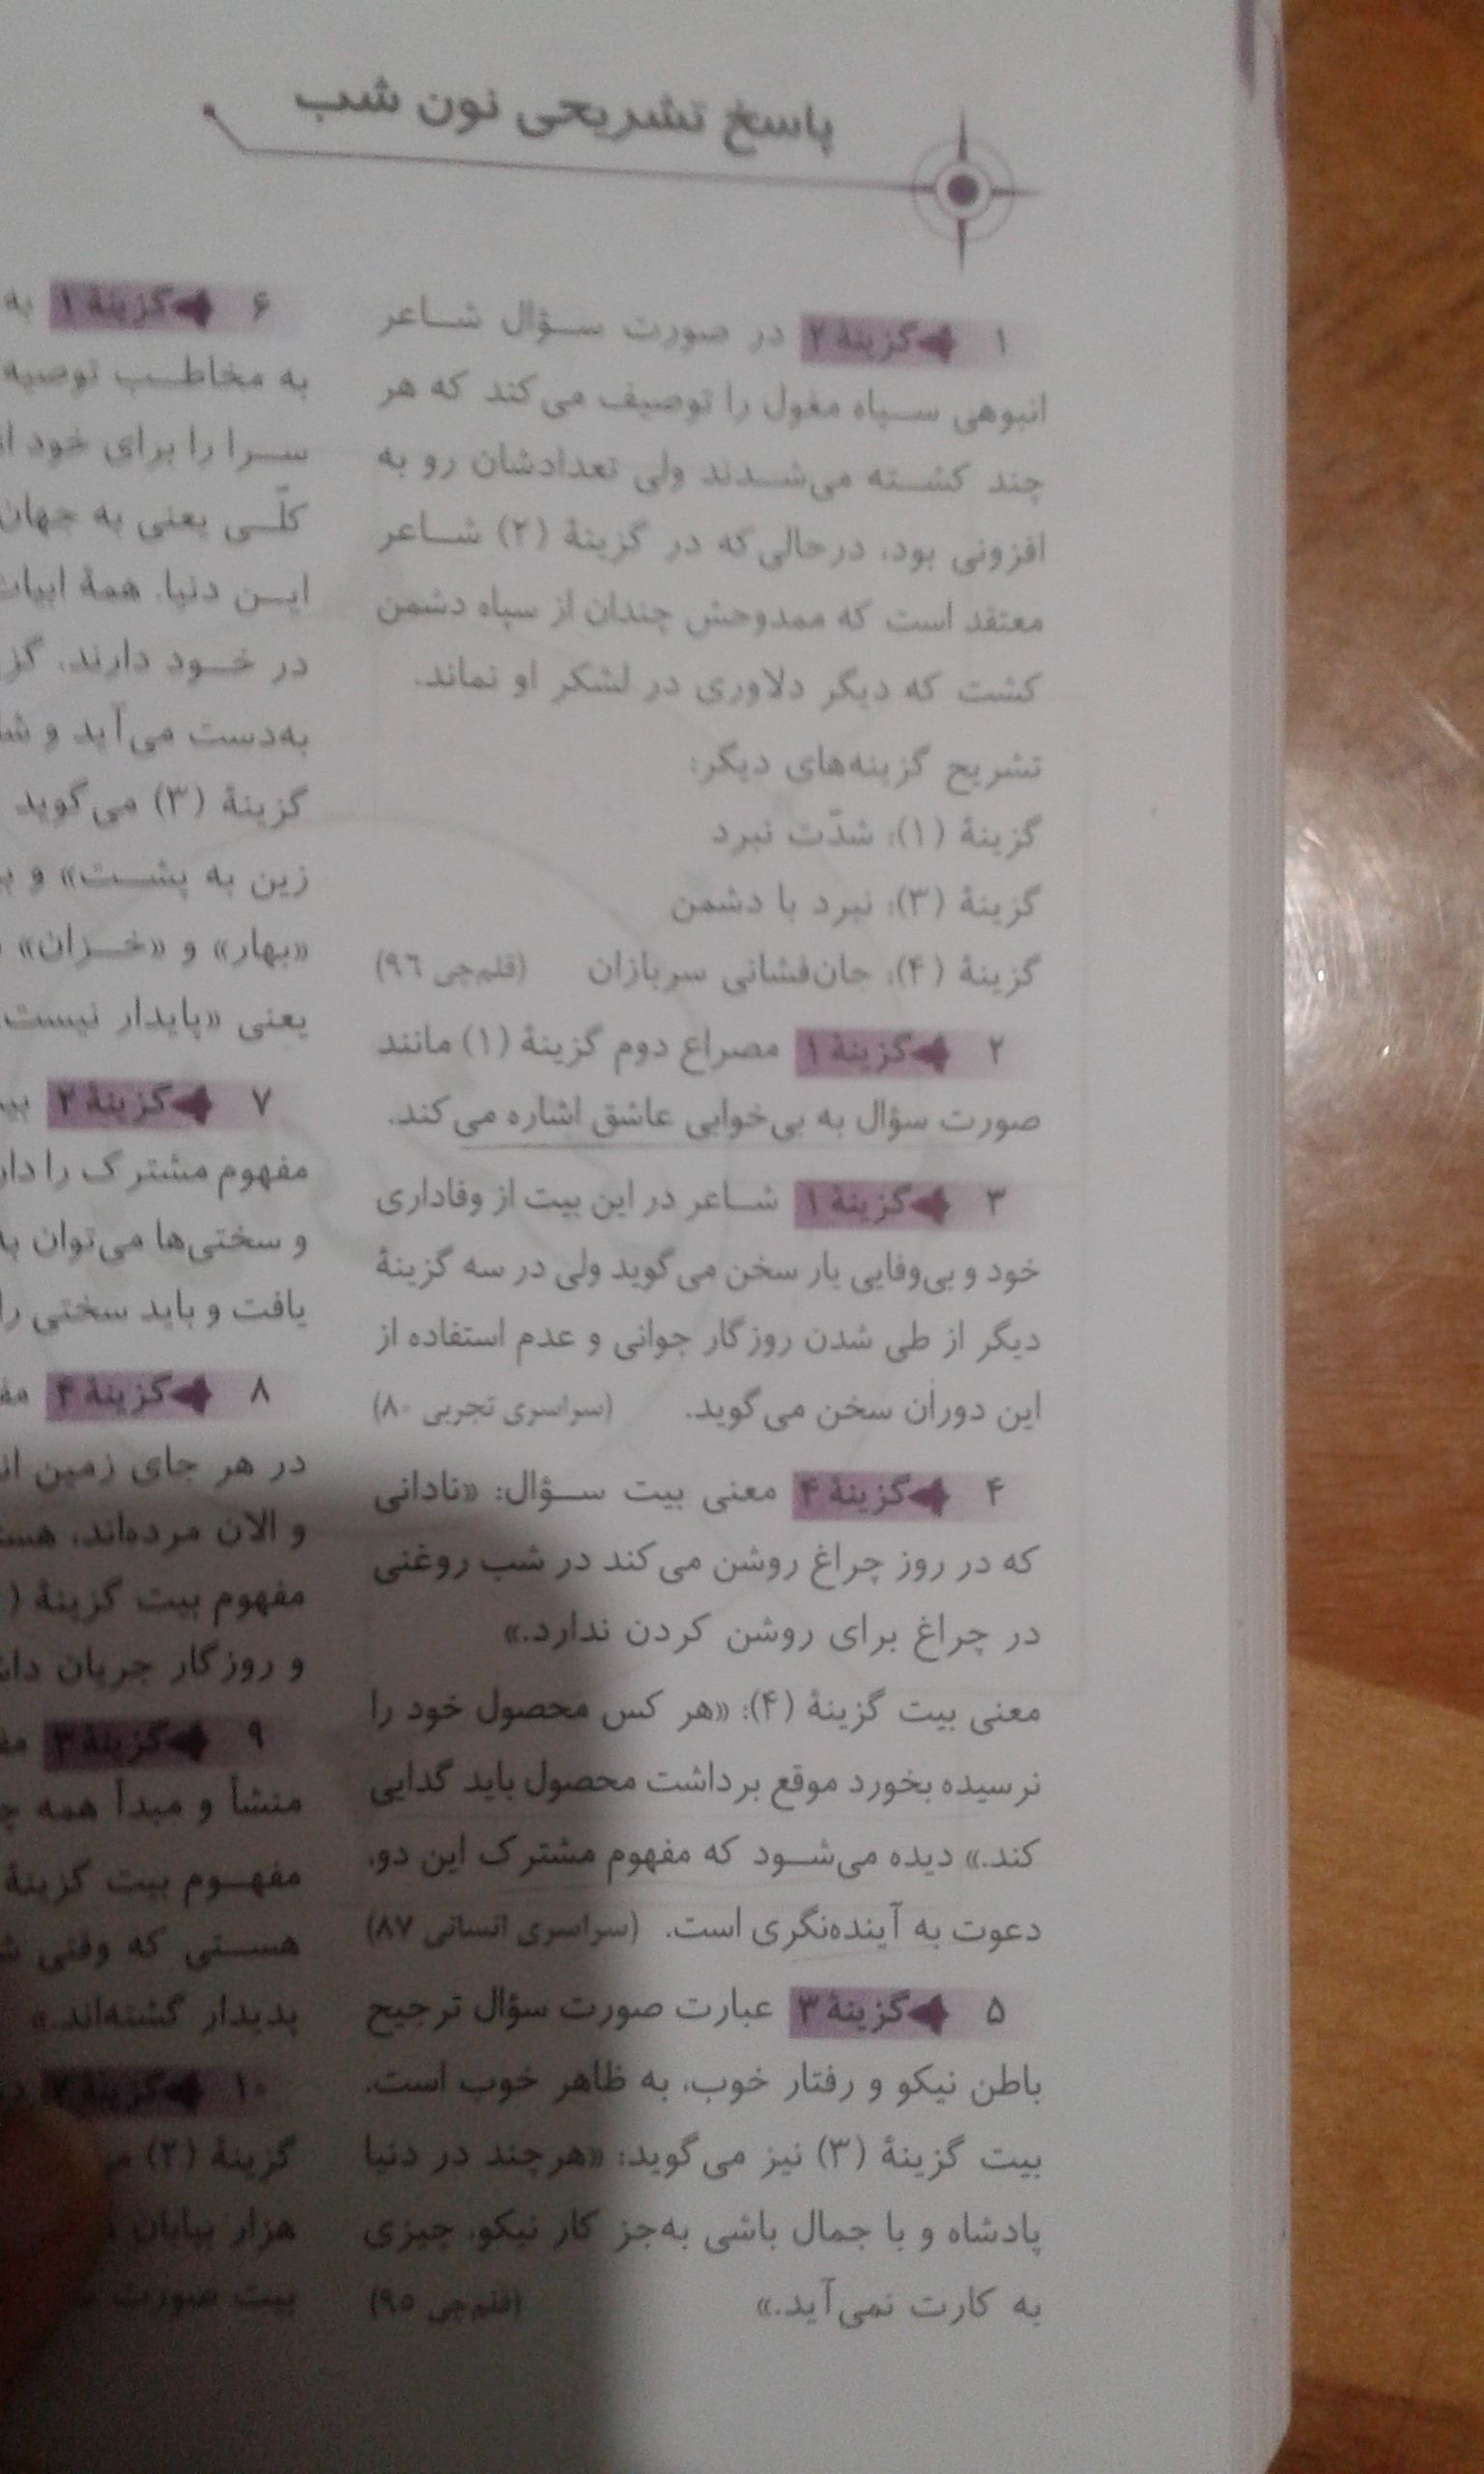 پاسخ تشریحی نون شب
۱ گزینهٔ ۲ در صورت سؤال شاعر
انبوهی سپاه مغول را توصیف می‌کند که هر
چند کشته می‌شدند ولی تعدادشان رو به
افزونی بود، درحالی‌که در گزینهٔ (۲) شاعر
معتقد است که ممدوحش چندان از سپاه دشمن
کشت که دیگر دلاوری در لشکر او نماند.
تشریح گزینه‌های دیگر:
گزینهٔ (۱): شدّت نبرد
گزینهٔ (۳): نبرد با دشمن
گزینهٔ (۴): جان‌فشانی سربازان (قلم‌چی ۹۶)
۲ گزینهٔ ۱ مصراع دوم گزینهٔ (۱) مانند
صورت سؤال به بی‌خوابی عاشق اشاره می‌کند.
۳ گزینهٔ ۱ شاعر در این بیت از وفاداری
خود و بی‌وفایی یار سخن می‌گوید ولی در سه گزینهٔ
دیگر از طی شدن روزگار جوانی و عدم استفاده از
این دوران سخن می‌گوید. (سراسری تجربی ۸۰)
۴ گزینهٔ ۴ معنی بیت سؤال: «نادانی
که در روز چراغ روشن می‌کند در شب روغنی
در چراغ برای روشن کردن ندارد.»
معنی بیت گزینهٔ (۴): «هر کس محصول خود را
نرسیده بخورد موقع برداشت محصول باید گدایی
کند.» دیده می‌شود که مفهوم مشترک این دو،
دعوت به آینده‌نگری است. (سراسری انسانی ۸۷)
۵ گزینهٔ ۳ عبارت صورت سؤال ترجیح
باطن نیکو و رفتار خوب، به ظاهر خوب است.
بیت گزینهٔ (۳) نیز می‌گوید: «هرچند در دنیا
پادشاه و با جمال باشی به‌جز کار نیکو، چیزی
به کارت نمی‌آید.» (قلم‌چی ۹۵)
۶ گزینهٔ ۱ به
به مخاطب توصیه
سرا را برای خود
کلّی یعنی به جهان
این دنیا. همهٔ ابیات
در خود دارند. گز
به‌دست می‌آید و
گزینهٔ (۳) می‌گوید
زین به پشت» و
«بهار» و «خزان»
یعنی «پایدار نیست
۷ گزینهٔ ۲
مفهوم مشترک را دار
و سختی‌ها می‌توان
یافت و باید سختی را
۸ گزینهٔ ۴
در هر جای زمین
و الان مرده‌اند،
مفهوم بیت گزینهٔ (
و روزگار جریان
۹ گزینهٔ ۳
منشأ و مبدأ همه
مفهوم بیت گزینهٔ
هستی که وقتی
پدیدار گشته‌اند.»
۱۰ گزینهٔ ۲
گزینهٔ (۲)
هزار بیابان
بیت صورت